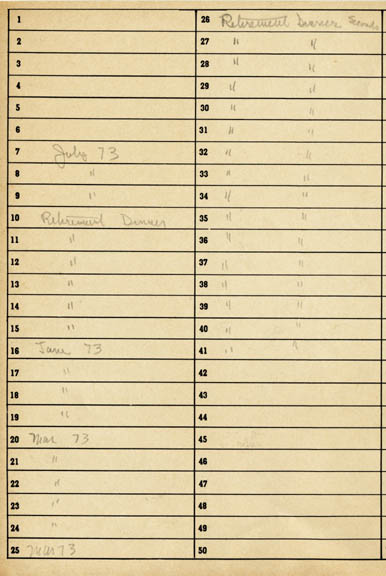 1
2
3
4
5
6
7 July 73
8 "
9 "
10 Retirement Dinner
11 "
12 "
13 "
14 "
15 "
16 June 73
17 "
18 "
19 "
20 Mar 73
21 "
22 "
23 "
24 "
25 Mar 73
26 Retirement Dinner Seconds
27 " "
28 " "
29 " "
30 " "
31 " "
32 " "
33 " "
34 " "
35 " "
36 " "
37 " "
38 " "
39 " "
40 " "
41 " "
42
43
44
45
46
47
48
49
50